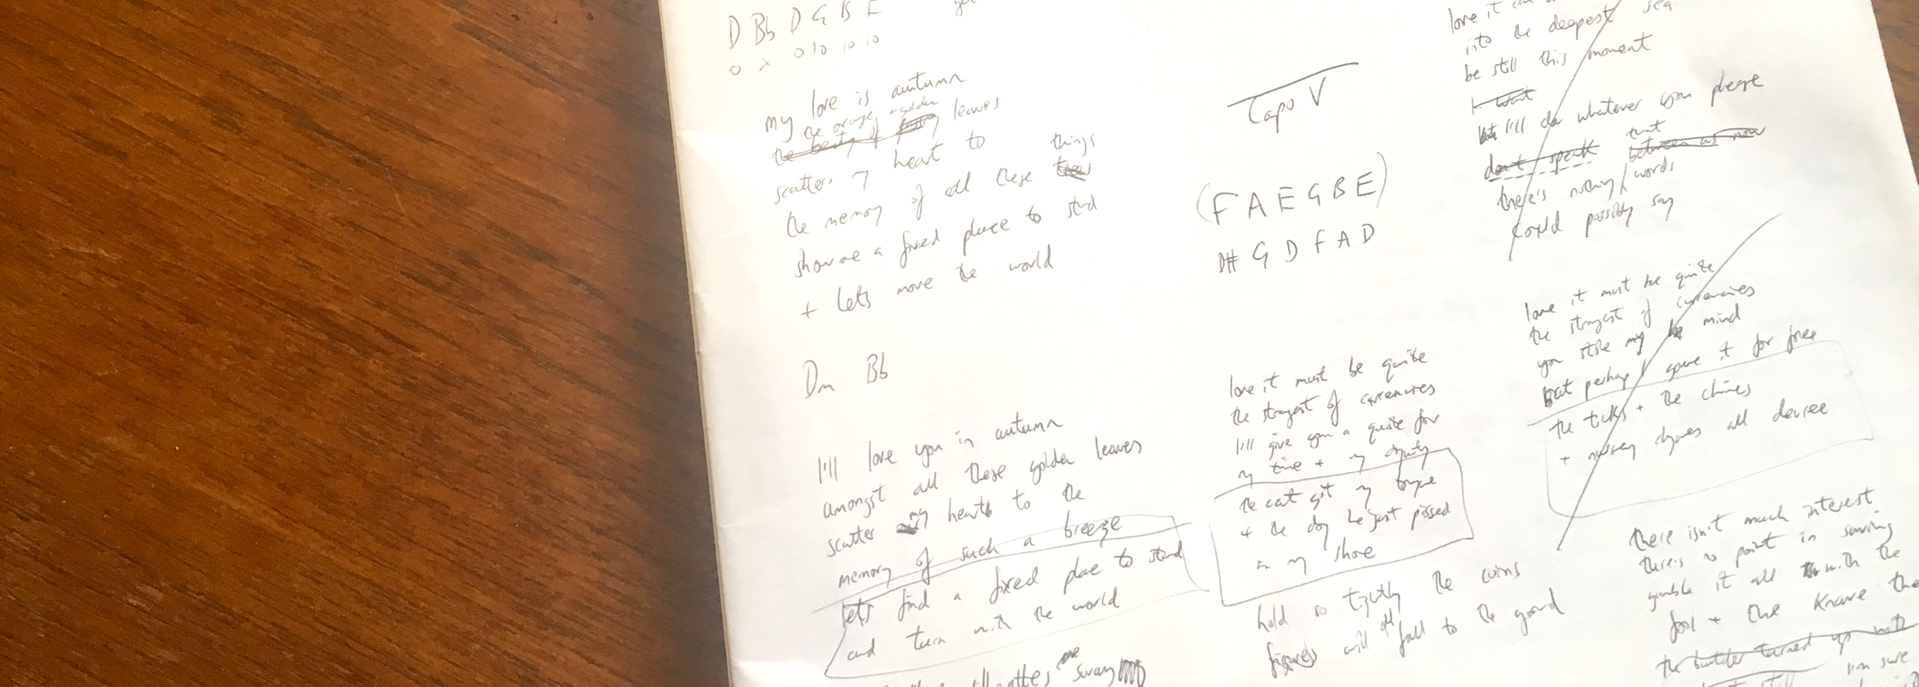 D Bb D G B E
0 x 0 10 10 10
my love is autumn
the orange + golden
the beauty of leaves
scatters my heart to things
the memory of all these trees
show me a fixed place to stand
+ lets move the world
Dm Bb
I'll love you in autumn
amongst all these golden leaves
scatter my heart to the
memory of such a breeze
lets find a fixed place to stand
and turn with the world
sway
Capo V
(F A E G B E)
D# G D F A D
love it must be quite
the strangest of currencies
I'll give you a quite for
my time + my dignity
the cat got my tongue
+ the dog he just pissed
in my shoe
hold so tightly the coins
figures will all fall to the ground
love it can
into the deepest sea
be still this moment
I want
but I'll do whatever you please
don't speak between us now
that
there's nothing words
could possibly say
love it must be quite
the strangest of currencies
you stole my mind
but perhaps I gave it for free
the ticks + the chimes
+ nursery rhymes all decree
there isn't much interest
there's no point in saving
gamble it all with the
fool + the knave the
the turned up with
I'm sure